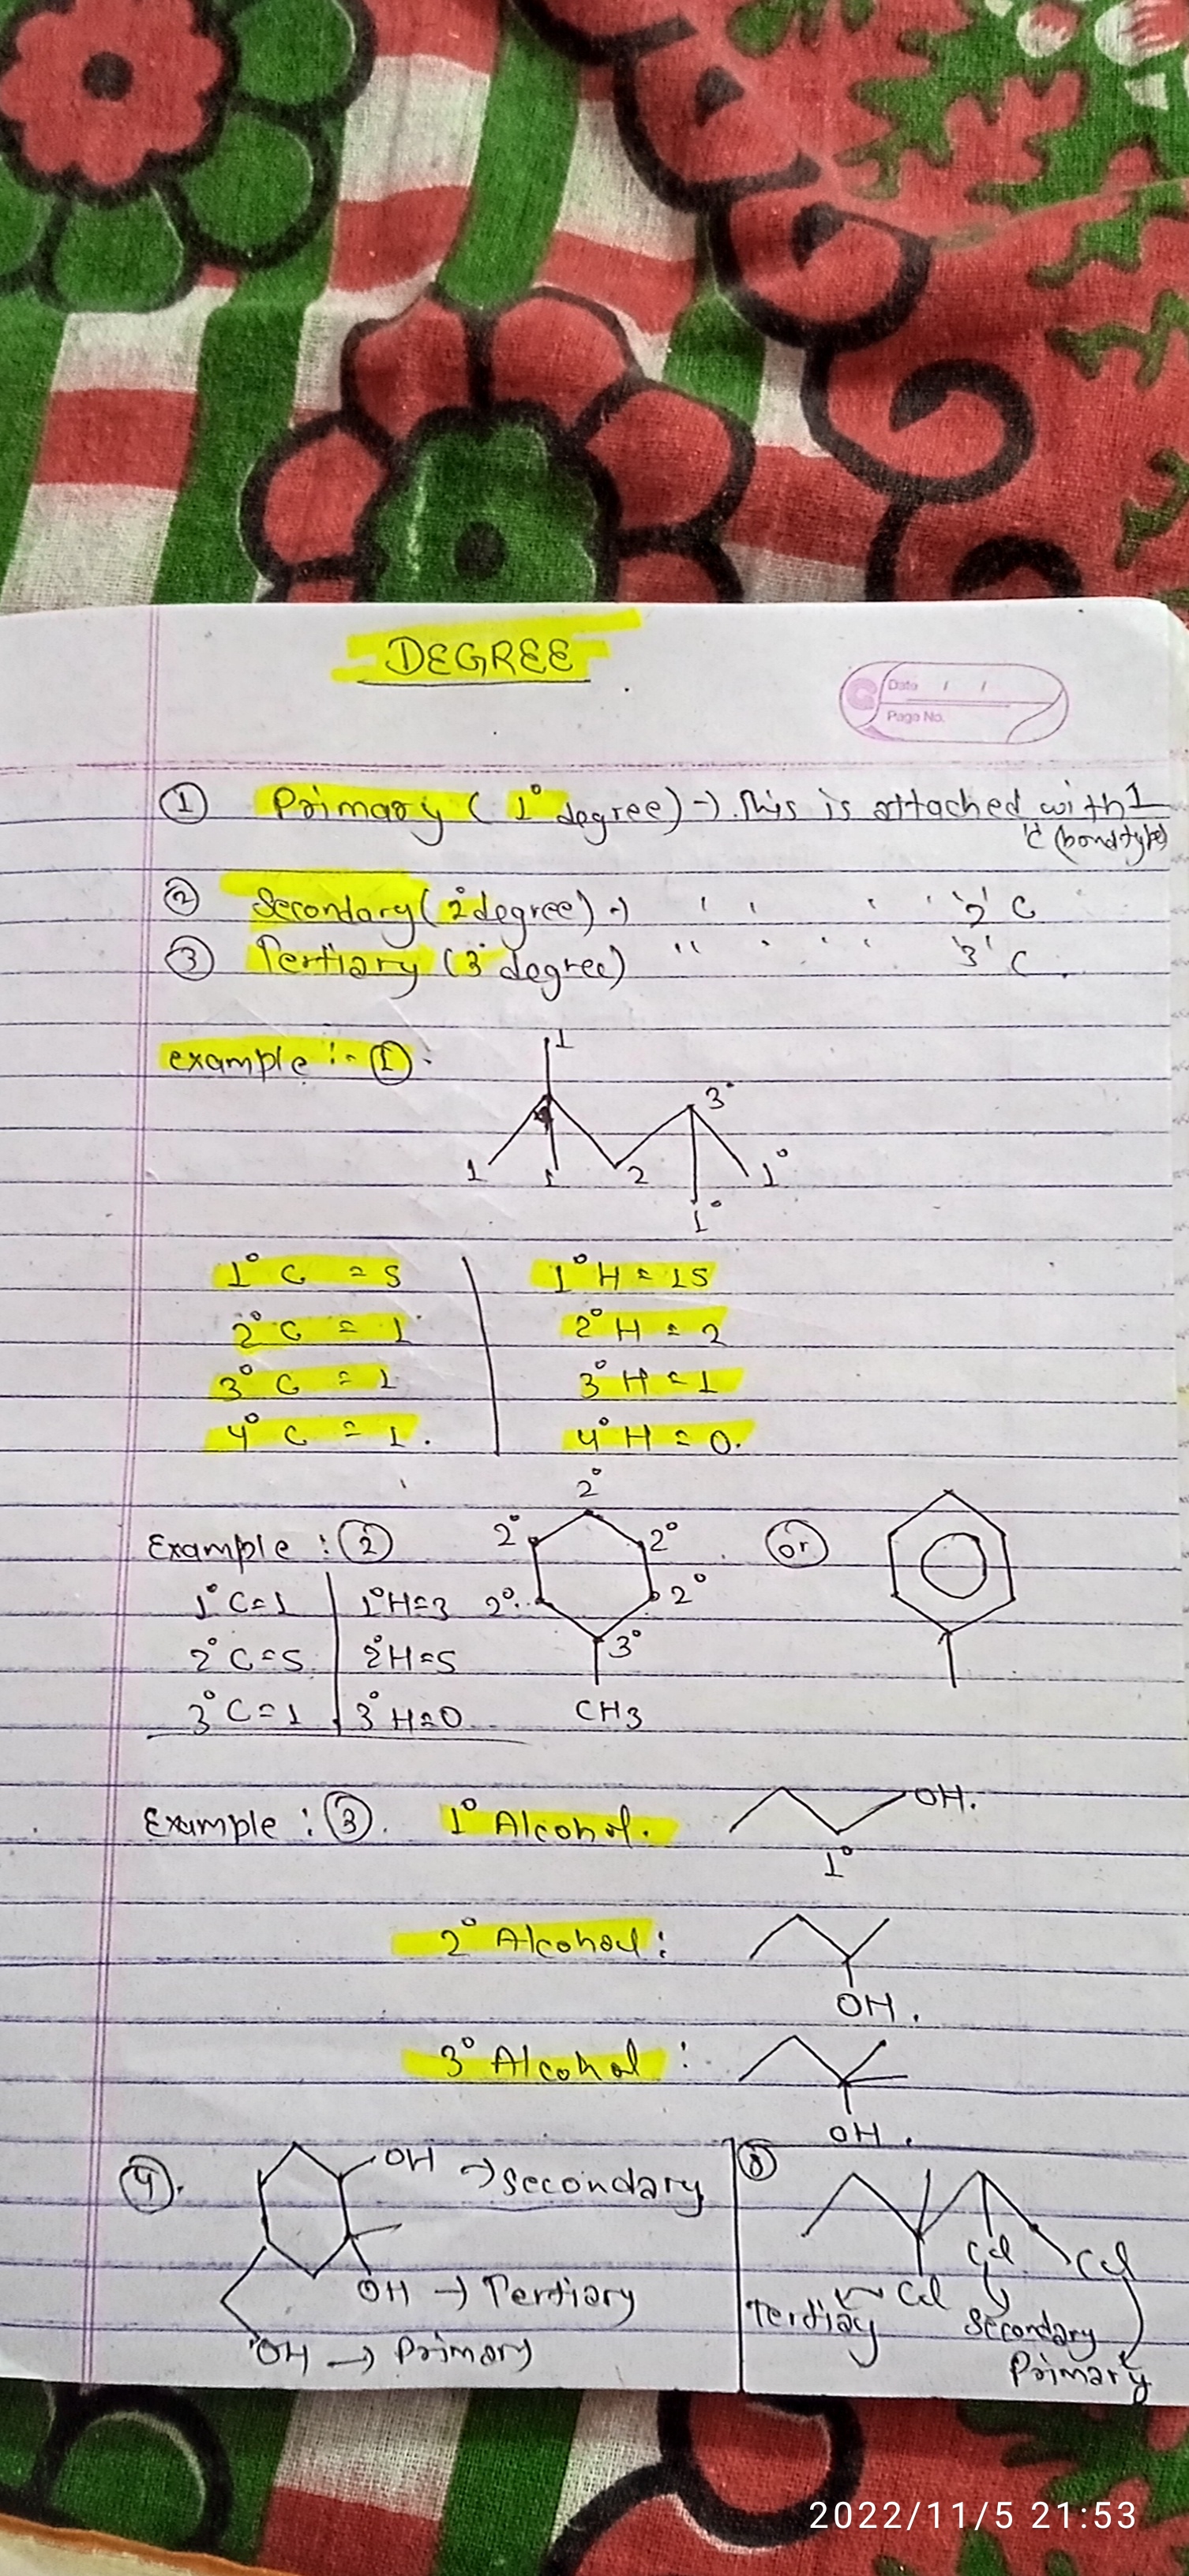 DEGREE
Date / /
Page No.
① Primary ( 1° degree) → This is attached with 1
'C (bond type)
② Secondary ( 2° degree) → ' ' ' ' '2' C
③ Tertiary (3° degree) " ' ' ' ' '3' C.
example :- ①:
1
3°
1 1 2 1°
1°
1° C = 5 1° H = 15
2° C = 1 2° H = 2
3° C = 1 3° H = 1
4° C = 1. 4° H = 0.
2°
Example : ② 2° 2° or
1° C=1 1°H=3 2° 2°
2° C=5 2°H=5 3°
3° C=1 3°H=0 CH3
Example : ③. 1° Alcohol. OH.
1°
2° Alcohol :
OH.
3° Alcohol :
OH.
④. OH → Secondary ⑤
OH → Tertiary
OH → Primary
Cl Cl Cl
Tertiary Secondary
Primary
2022/11/5 21:53